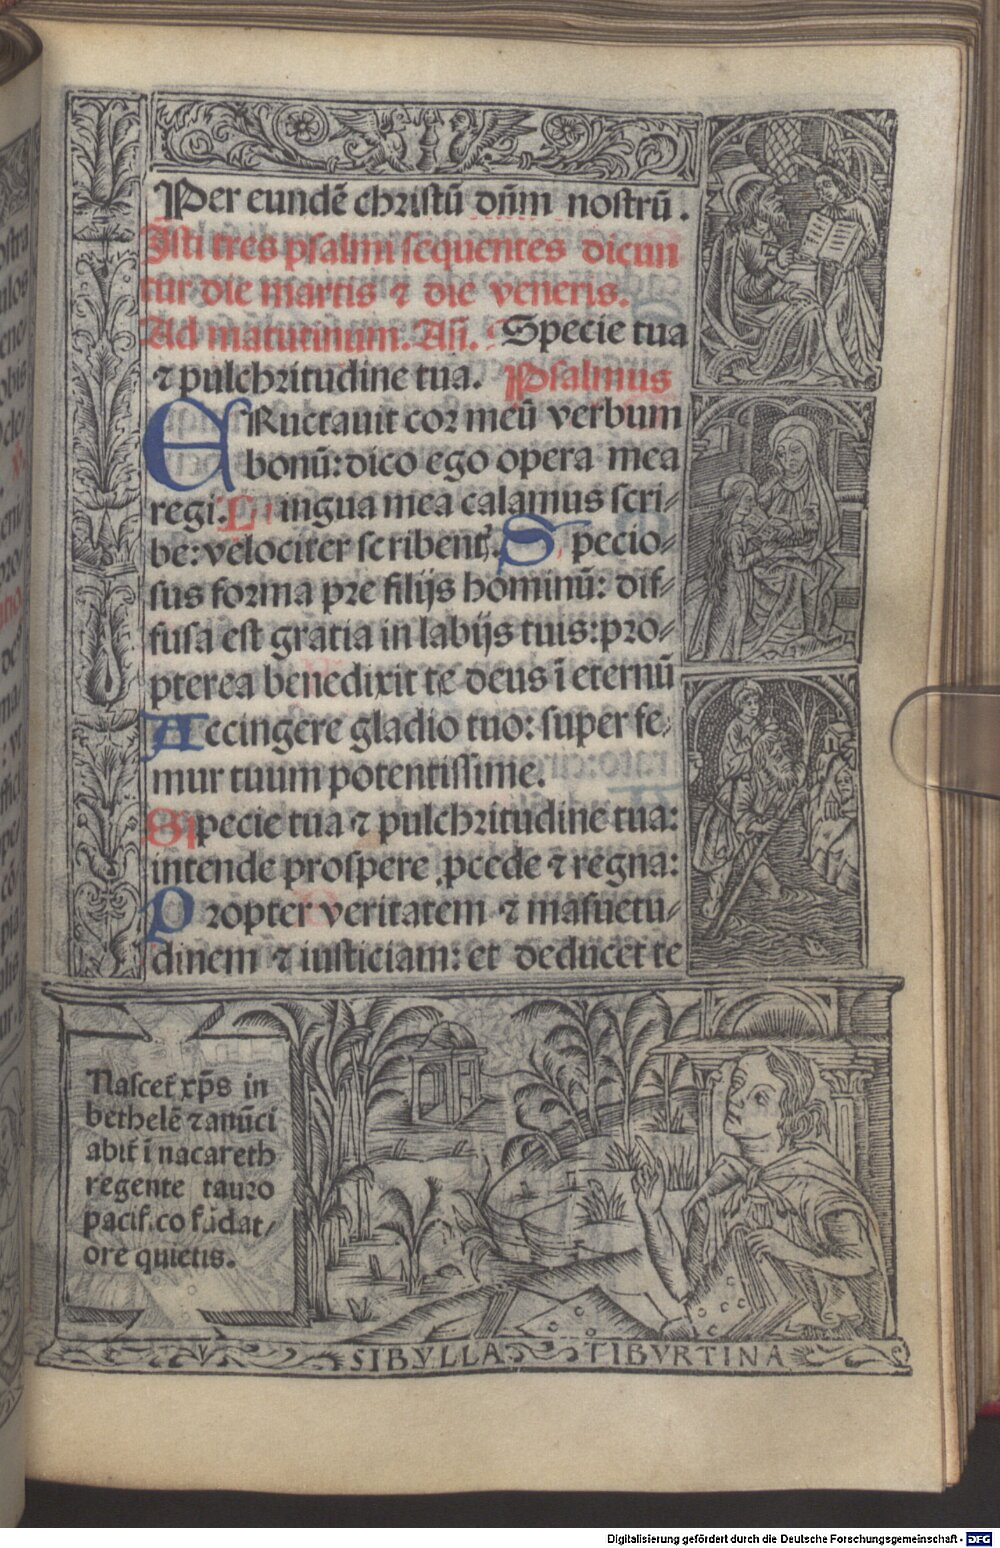 Per eundē christū dn̄m nostrū.
Isti tres psalmi sequentes dicun
tur die martis ⁊ die veneris.
Ad matutinum. Añ. Specie tua
⁊ pulchritudine tua. Psalmus
ERuctauit cor meū verbum
bonū: dico ego opera mea
regi. Lingua mea calamus scri⸗
be: velociter scribent͛. Specio⸗
sus forma pre filijs hominū: dif⸗
fusa est gratia in labijs tuis: pro⸗
pterea benedixit te deus ī eternū
Accingere gladio tuo: super fe⸗
mur tuum potentissime.
Specie tua ⁊ pulchritudine tua:
intende prospere ꝓcede ⁊ regna:
Propter veritatem ⁊ māsuetu⸗
dinem ⁊ iusticiam: et deducet te
Nascet͛ xp̄s in
bethelē ⁊ anūci
abit͛ ī nacareth
regente tauro
pacifico fūdat⸗
ore quietis.
SIBVLLA TIBVRTINA
Digitalisierung gefördert durch die Deutsche Forschungsgemeinschaft - DFG